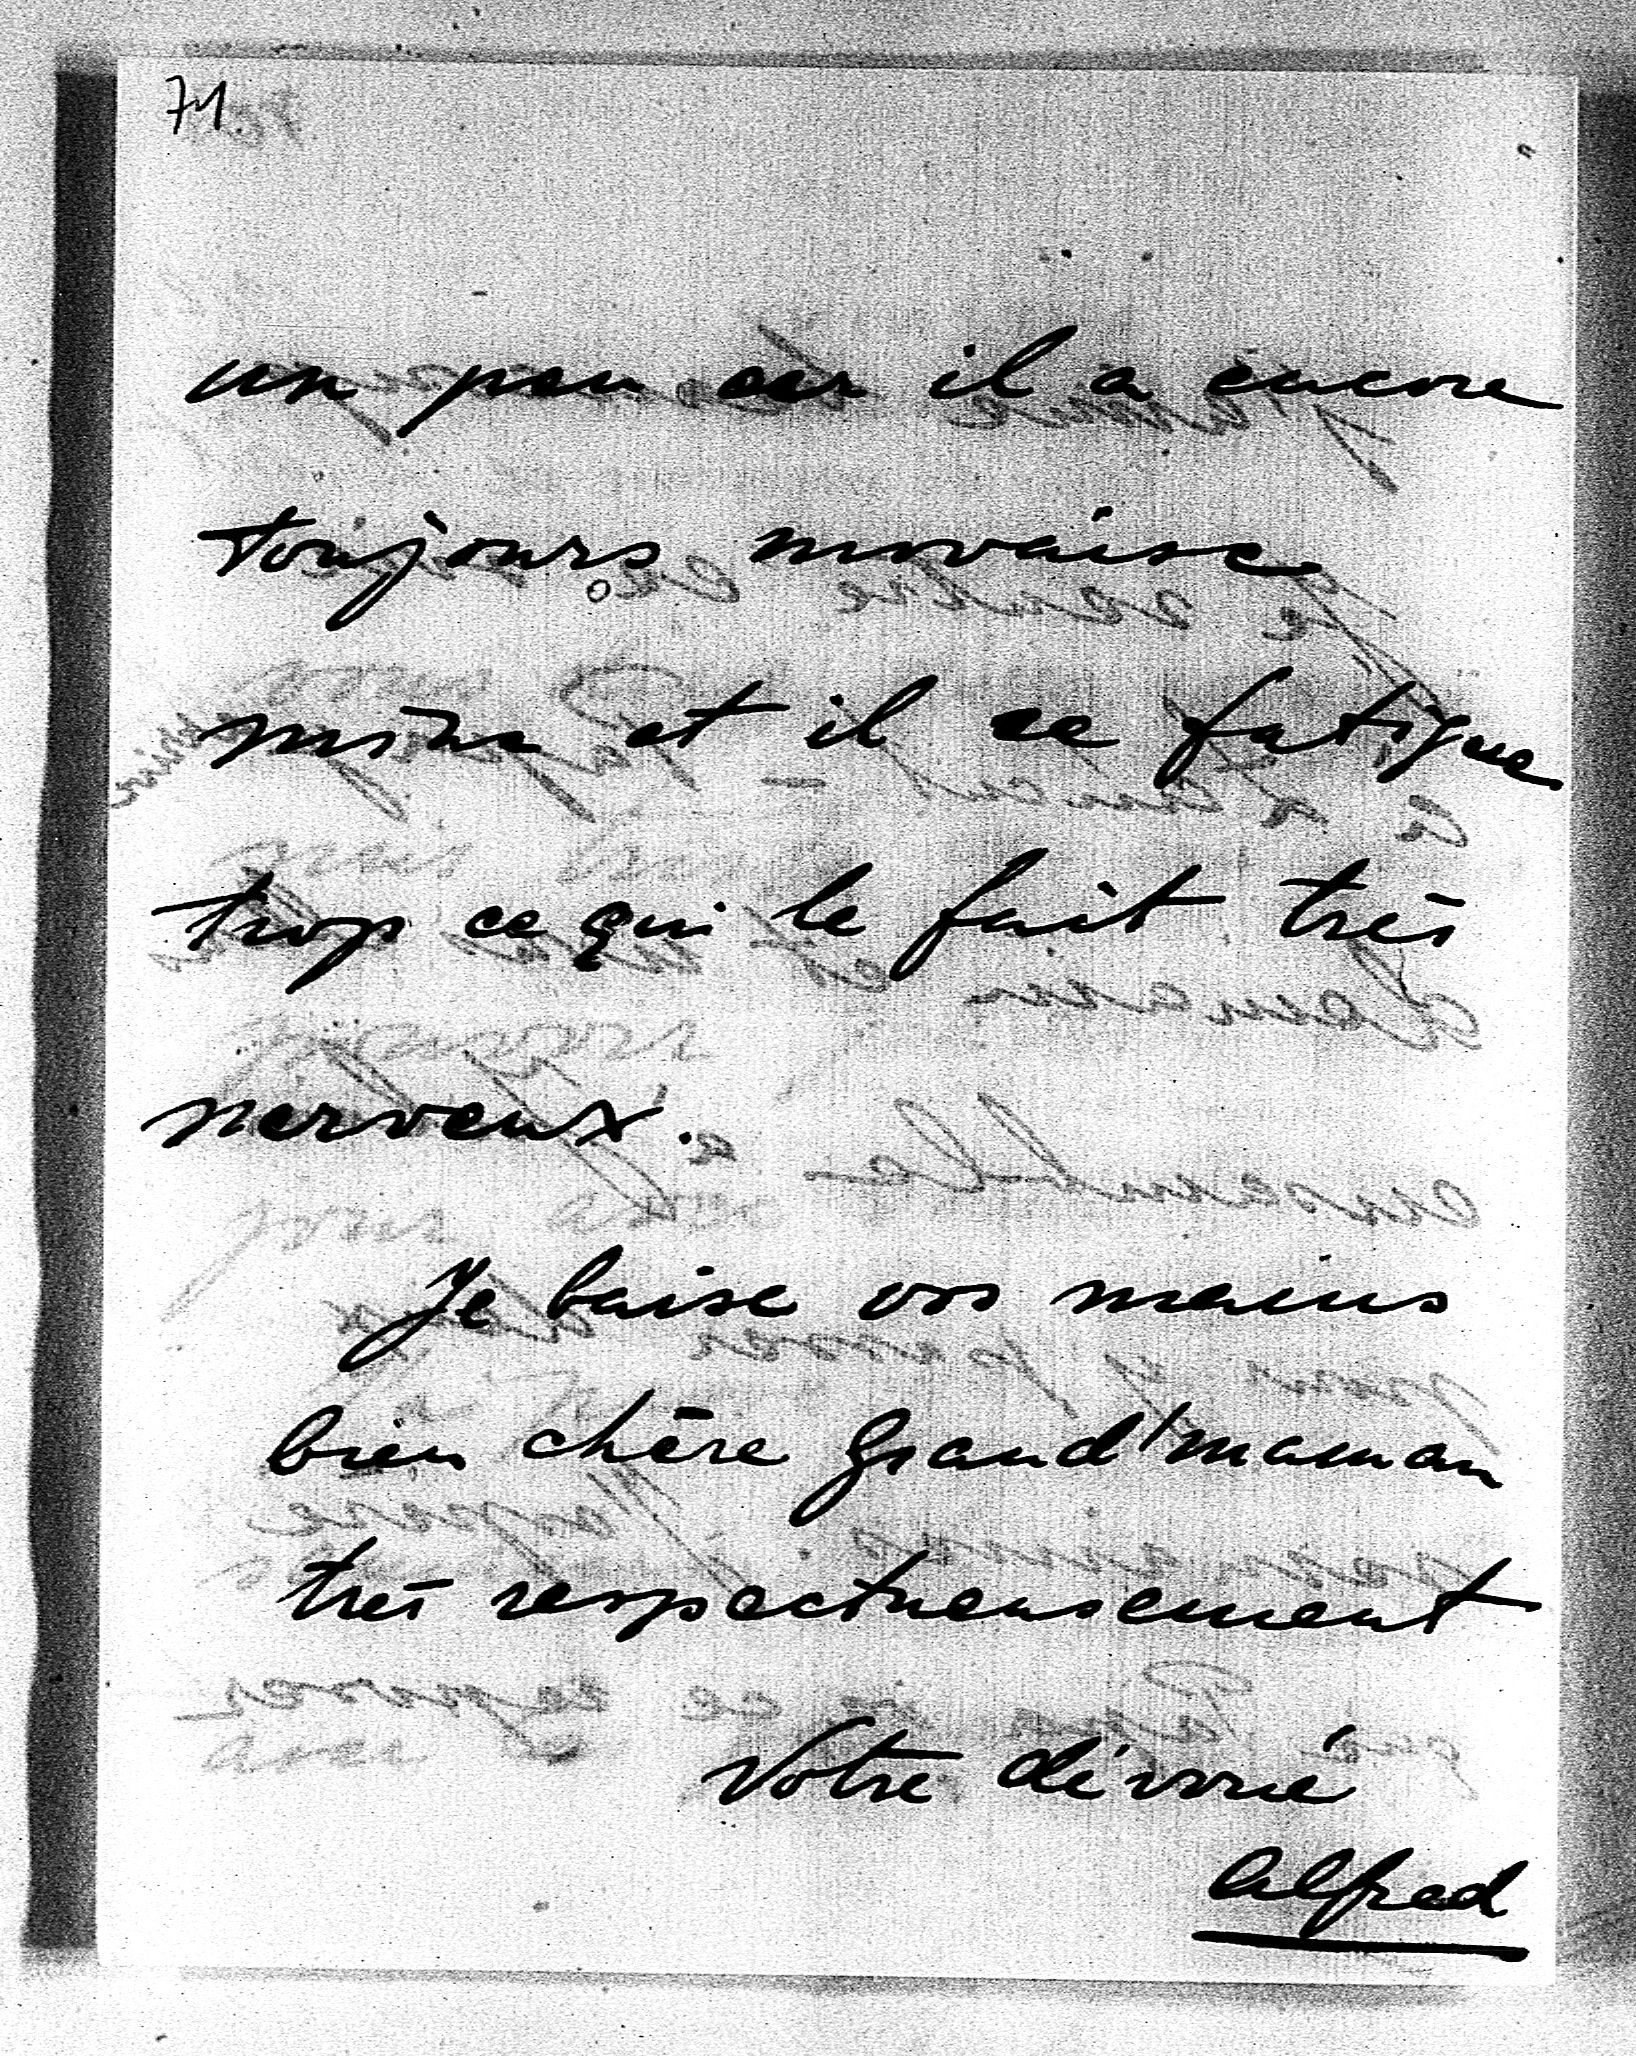 71
un peu car il a encore
toujours movaise
mine et il se fatigue
trop ce qui le fait très
nerveux.
Je baise vos mains
bien chère Grand'maman
très respectueusement
Votre dévoué
Alfred